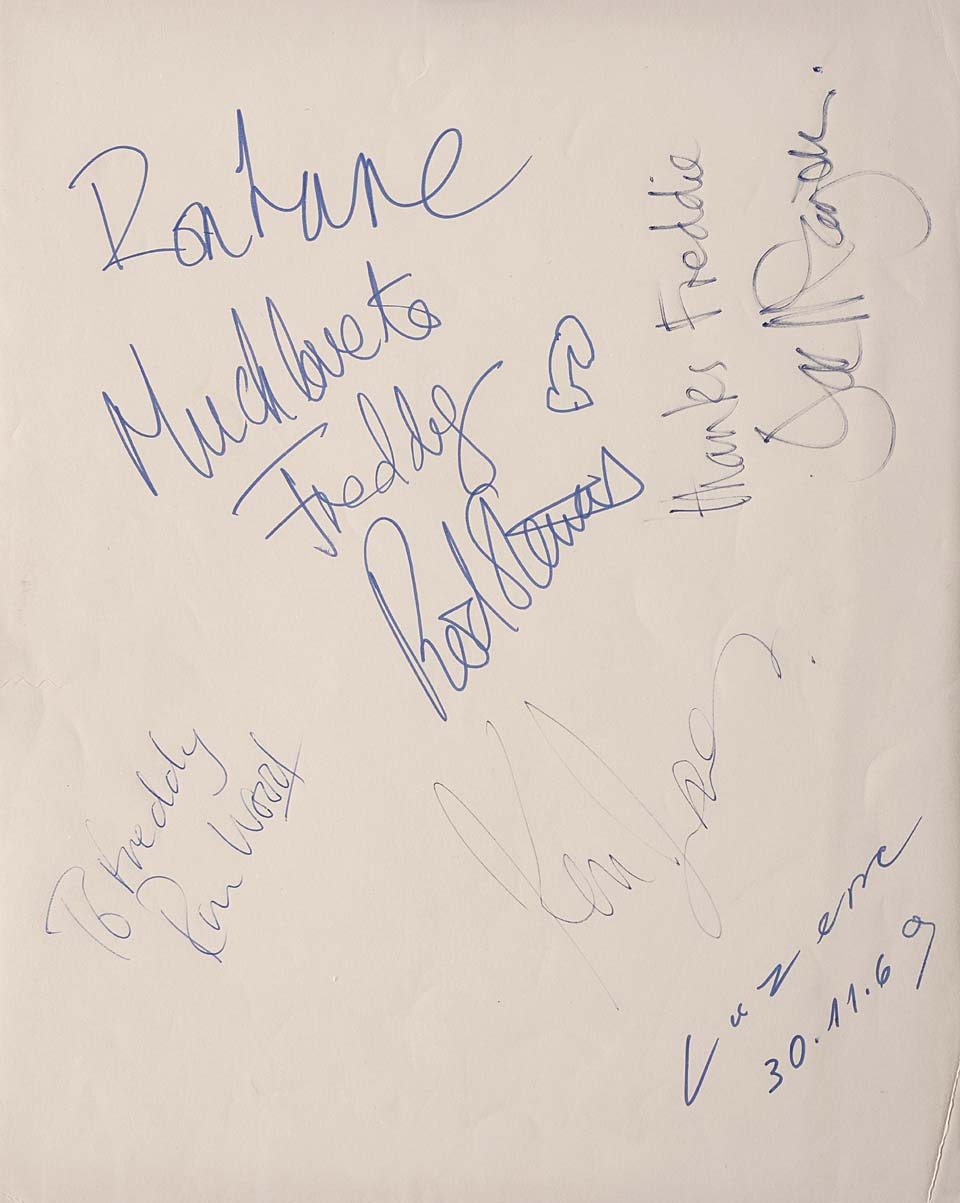 Ron Lane
Much love to
Freddy
Rod Stewart
thanks Freddie
To Freddy
Ron Wood
Ken Jones
Luzern
30.11.69